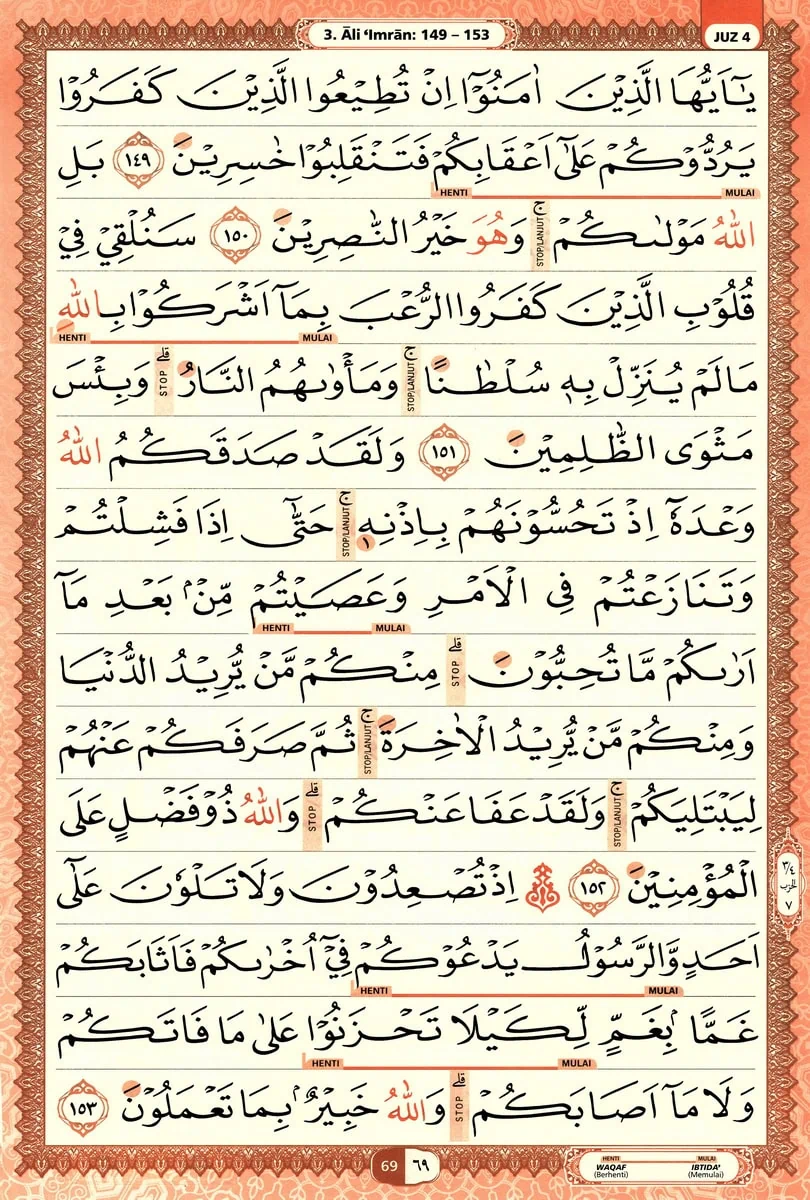 3. Āli ‘Imrān: 149 – 153
JUZ 4
يٰٓاَيُّهَا الَّذِيْنَ اٰمَنُوْٓا اِنْ تُطِيْعُوا الَّذِيْنَ كَفَرُوْا
يَرُدُّوْكُمْ عَلٰٓى اَعْقَابِكُمْ فَتَنْقَلِبُوْا خٰسِرِيْنَ ١٤٩ بَلِ
HENTI MULAI
اللّٰهُ مَوْلٰىكُمْ ۚ STOP/LANJUT وَهُوَ خَيْرُ النّٰصِرِيْنَ ١٥٠ سَنُلْقِيْ فِيْ
قُلُوْبِ الَّذِيْنَ كَفَرُوا الرُّعْبَ بِمَآ اَشْرَكُوْا بِاللّٰهِ
HENTI MULAI
مَا لَمْ يُنَزِّلْ بِهٖ سُلْطٰنًا ۚ STOP/LANJUT وَمَأْوٰىهُمُ النَّارُ ۗ STOP وَبِئْسَ
مَثْوَى الظّٰلِمِيْنَ ١٥١ وَلَقَدْ صَدَقَكُمُ اللّٰهُ
وَعْدَهٗٓ اِذْ تَحُسُّوْنَهُمْ بِاِذْنِهٖ ۚ STOP/LANJUT حَتّٰىٓ اِذَا فَشِلْتُمْ
وَتَنَازَعْتُمْ فِى الْاَمْرِ وَعَصَيْتُمْ مِّنْۢ بَعْدِ مَآ
HENTI MULAI
اَرٰىكُمْ مَّا تُحِبُّوْنَ ۗ STOP مِنْكُمْ مَّنْ يُّرِيْدُ الدُّنْيَا
وَمِنْكُمْ مَّنْ يُّرِيْدُ الْاٰخِرَةَ ۚ STOP/LANJUT ثُمَّ صَرَفَكُمْ عَنْهُمْ
لِيَبْتَلِيَكُمْ ۚ STOP/LANJUT وَلَقَدْ عَفَا عَنْكُمْ ۗ STOP وَاللّٰهُ ذُوْ فَضْلٍ عَلَى
الْمُؤْمِنِيْنَ ١٥٢ ۞ اِذْ تُصْعِدُوْنَ وَلَا تَلْوٗنَ عَلٰٓى
٣/٤ الحزب ٧
اَحَدٍ وَّالرَّسُوْلُ يَدْعُوْكُمْ فِيْٓ اُخْرٰىكُمْ فَاَثَابَكُمْ
HENTI MULAI
غَمًّا ۢبِغَمٍّ لِّكَيْلَا تَحْزَنُوْا عَلٰى مَا فَاتَكُمْ
HENTI MULAI
وَلَا مَآ اَصَابَكُمْ ۗ STOP وَاللّٰهُ خَبِيْرٌ ۢبِمَا تَعْمَلُوْنَ ١٥٣
69 ٦٩
HENTI MULAI
WAQAF IBTIDA'
(Berhenti) (Memulai)